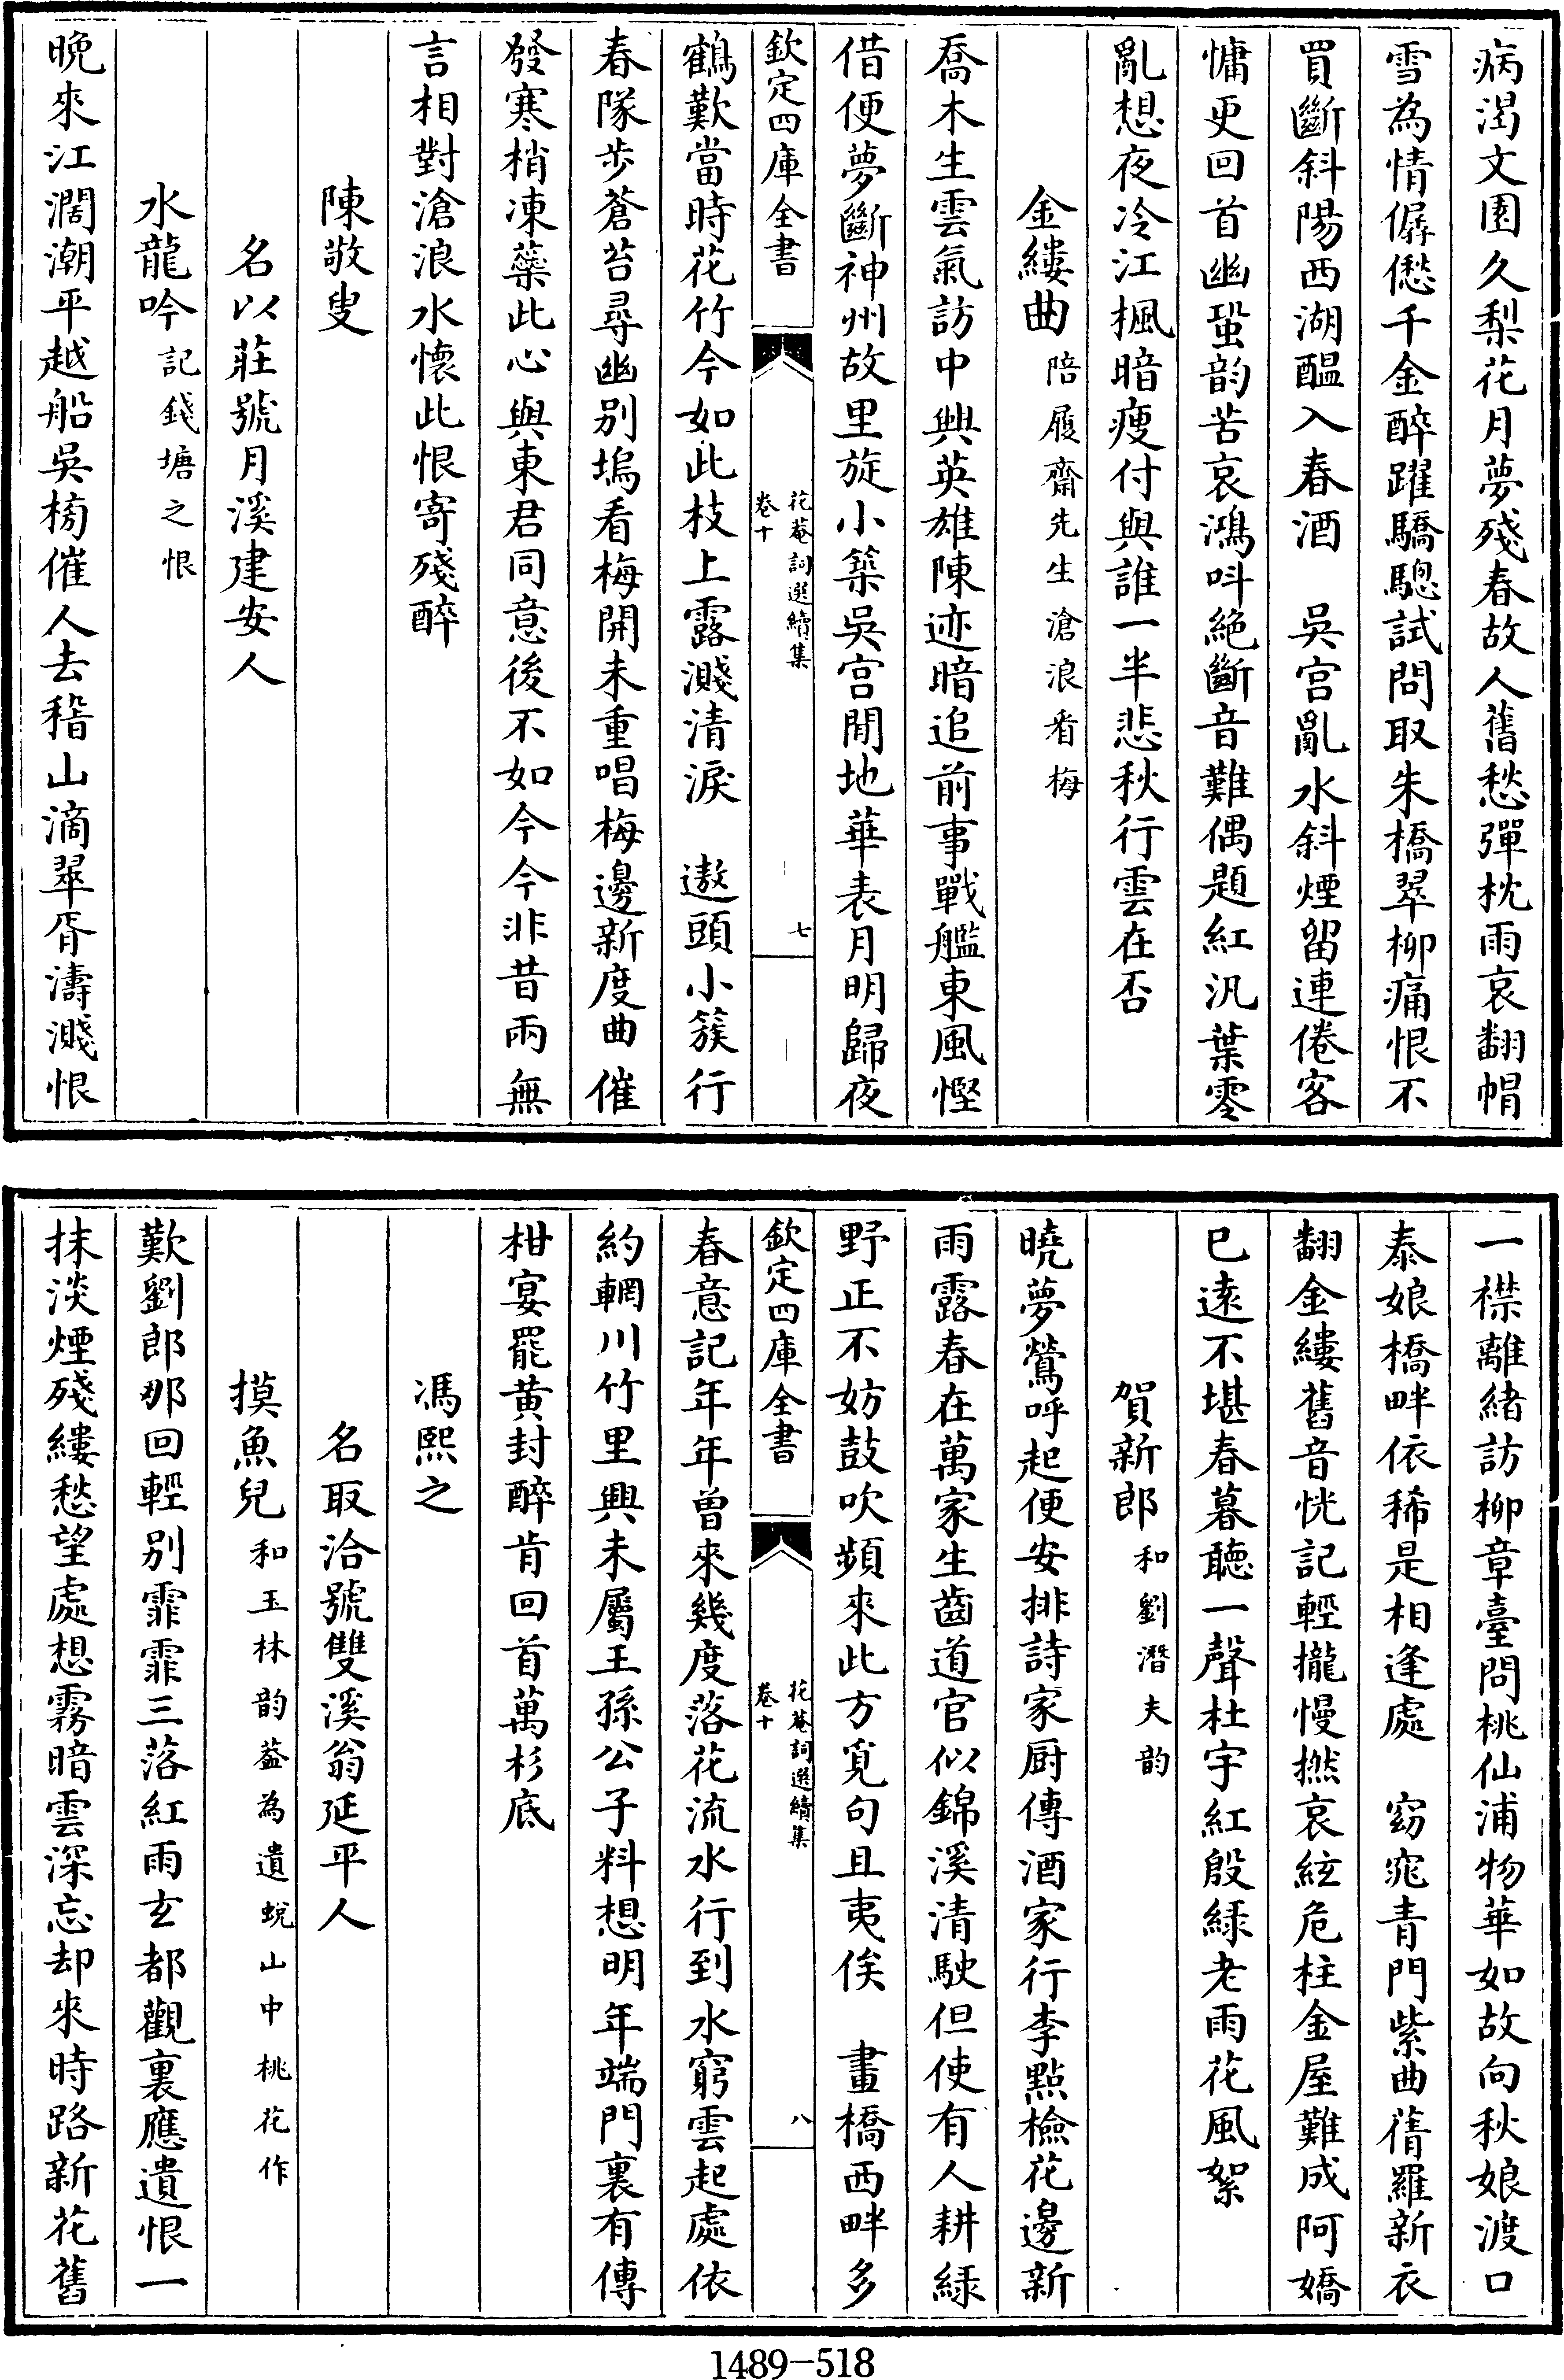 病渴文園久梨花月夢殘春故人舊愁彈枕雨哀翻㡌
雪為情僝僽千金醉躍驕驄試問取朱橋翠柳痛恨不
買斷斜陽西湖醖入春酒　吳宫亂水斜煙留連倦客
慵更回首幽蛩韵苦哀鴻呌絶斷音難偶題紅汎葉零
亂想夜冷江楓暗瘦付與誰一半悲秋行雲在否
金縷曲陪履齋先生滄浪看梅
喬木生雲氣訪中興英雄陳迹暗追前事戰艦東風慳
借便夢斷神州故里旋小築吳宫閒地華表月明歸夜
欽定四庫全書
花菴詞選續集
卷十
七
鶴歎當時花竹今如此枝上露濺清淚　遨頭小簇行
春隊步蒼苔尋幽别塢看梅開未重唱梅邊新度曲催
發寒梢凍蘂此心與東君同意後不如今今非昔兩無
言相對滄浪水懷此恨寄殘醉
陳敬叟
名以莊號月溪建安人
水龍吟記錢塘之恨
晚來江濶潮平越船吳榜催人去稽山滴翠胥濤濺恨
一襟離緒訪柳章臺問桃仙浦物華如故向秋娘渡口
泰娘橋畔依稀是相逢處　窈窕青門紫曲蒨羅新衣
翻金縷舊音恍記輕攏慢撚哀絃危柱金屋難成阿嬌
已逺不堪春暮聽一聲杜宇紅殷緑老雨花風絮
賀新郎和劉潛夫韵
曉夢鶯呼起便安排詩家厨傳酒家行李㸃檢花邊新
雨露春在萬家生齒道官似錦溪清駛但使有人耕緑
野正不妨鼓吹頻來此方覓句且夷俟　畫橋西畔多
欽定四庫全書
花菴詞選續集
卷十
八
春意記年年曾來幾度落花流水行到水窮雲起處依
約輞川竹里興未屬王孫公子料想明年端門裏有傳
柑宴罷黄封醉肯回首萬杉底
馮熙之
名取洽號雙溪翁延平人
摸魚兒和玉林韵葢為遺蛻山中桃花作
歎劉郎那回輕别霏霏三落紅雨玄都觀裏應遺恨一
抹淡煙殘縷愁望處想霧暗雲深忘却來時路新花舊
1489—518